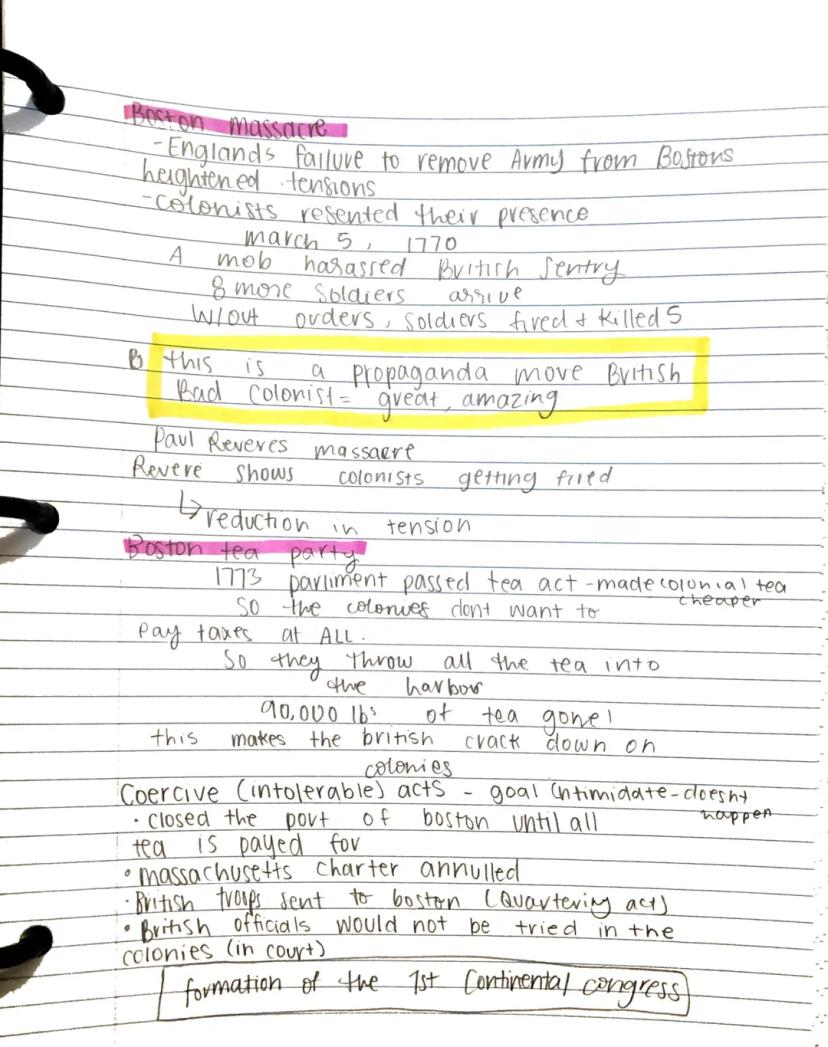 Boston massacre
-Englands failure to remove Army from Bostons
heightened tensions
-colonists resented their presence
march 5, 1770
A mob harassed British sentry
8 more soldiers arrive
w/out orders, soldiers fired + killed 5
B this is a propaganda move British
Bad colonist = great, amazing
Paul Reveres massacre
Revere shows colonists getting fired
↳ reduction in tension
Boston tea party
1773 parliment passed tea act - made colonial tea
cheaper
so the colonies dont want to
pay taxes at ALL.
so they throw all the tea into
the harbor
90,000 lbs of tea gone!
this makes the british crack down on
colonies
Coercive (intolerable) acts - goal intimidate - doesnt
happen
• closed the port of boston until all
tea is payed for
• massachusetts charter annulled
• British troops sent to boston (Quartering act)
• British officials would not be tried in the
colonies (in court)
formation of the 1st Continental congress